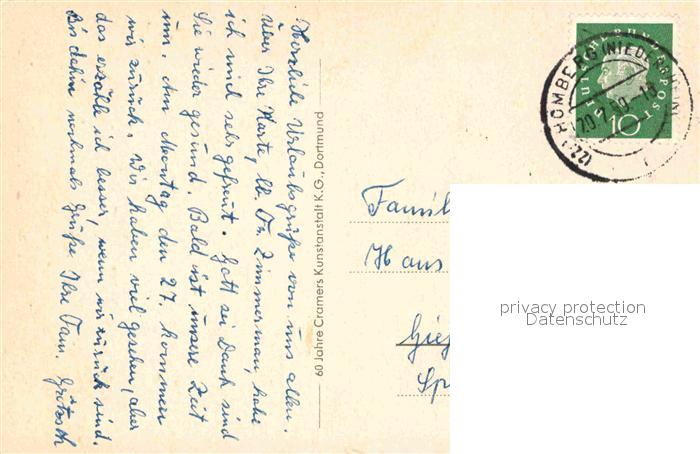 Herzliche Urlaubsgrüße von uns allen.
Über Ihre Karte, lb. Fr. Zimmermann, habe
ich mich sehr gefreut. Gott sei Dank sind
Sie wieder gesund. Bald ist unsere Zeit
um. Am Montag den 27. kommen
wir zurück. Wir haben viel gesehen, aber
das erzähle ich besser, wenn wir zurück sind.
Bis dahin nochmals Grüße Ihre Fam.
60 Jahre Cramers Kunstanstalt K.G., Dortmund
DEUTSCHE BUNDESPOST
10
(22a) HOMBERG (NIEDERRHEIN)
20.7.59-18
Famil
Haus
Gieß
Sp
privacy protection
Datenschutz